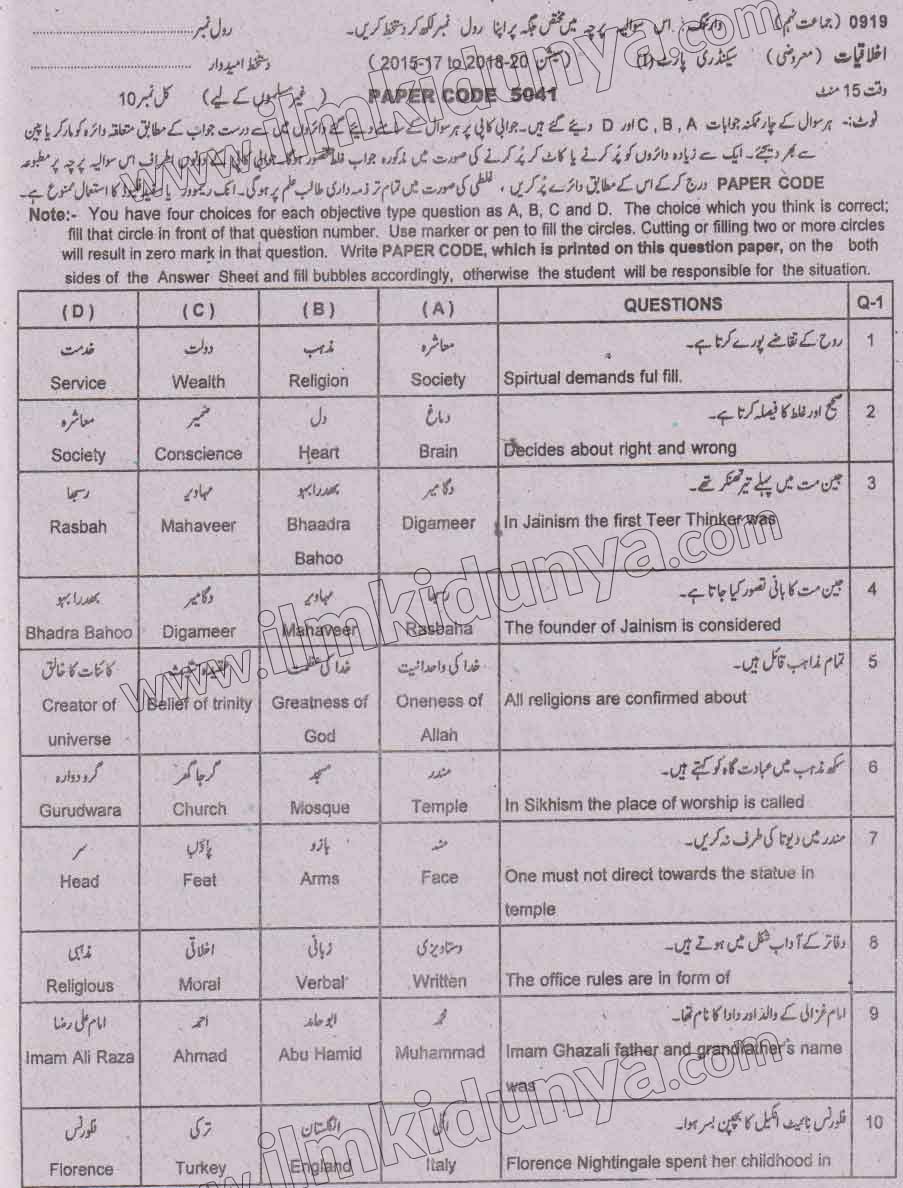 0919 (جماعت نہم) وارننگ:۔ اس سوالیہ پرچہ میں مختص جگہ پر اپنا رول نمبر لکھ کر دستخط کریں۔ رول نمبر
اخلاقیات (معروضی) سیکنڈری پارٹ (I) (سیشن 2015-17 to 2018-20) دستخط امیدوار
وقت 15 منٹ PAPER CODE 5041 (غیر مسلموں کے لیے) کل نمبر 10
نوٹ:۔ ہر سوال کے چار ممکنہ جوابات A ، B ، C اور D دیئے گئے ہیں۔ جوابی کاپی پر ہر سوال کے سامنے دیئے گئے دائروں میں سے درست جواب کے مطابق متعلقہ دائرہ کو مارکر یا پین
سے بھر دیجئے۔ ایک سے زیادہ دائروں کو پُر کرنے یا کاٹ کر پُر کرنے کی صورت میں مذکورہ جواب غلط تصور ہوگا۔ جوابی کاپی کے دونوں اطراف اس سوالیہ پرچہ پر مطبوعہ
PAPER CODE درج کر کے اس کے مطابق دائرے پُر کریں ، غلطی کی صورت میں تمام تر ذمہ داری طالب علم پر ہوگی۔ انک ریموور یا سفید فلیوڈ کا استعمال ممنوع ہے۔
Note:- You have four choices for each objective type question as A, B, C and D. The choice which you think is correct;
fill that circle in front of that question number. Use marker or pen to fill the circles. Cutting or filling two or more circles
will result in zero mark in that question. Write PAPER CODE, which is printed on this question paper, on the both
sides of the Answer Sheet and fill bubbles accordingly, otherwise the student will be responsible for the situation.
(D) (C) (B) (A) QUESTIONS Q-1
خدمت دولت مذہب معاشرہ روح کے تقاضے پورے کرتا ہے۔ 1
Service Wealth Religion Society Spirtual demands ful fill.
معاشرہ ضمیر دل دماغ صحیح اور غلط کا فیصلہ کرتا ہے۔ 2
Society Conscience Heart Brain Decides about right and wrong
رسبھا مہاویر بھدرا باہو دگامیر جین مت میں پہلے تیر تھنکر تھے۔ 3
Rasbah Mahaveer Bhaadra Digameer In Jainism the first Teer Thinker was
Bahoo
بھدرا باہو دگامیر مہاویر رسبھا جین مت کا بانی تصور کیا جاتا ہے۔ 4
Bhadra Bahoo Digameer Mahaveer Rasbaha The founder of Jainism is considered
کائنات کا خالق عقیدہ تثلیث خدا کی عظمت خدا کی واحدانیت تمام مذاہب قائل ہیں۔ 5
Creator of Belief of trinity Greatness of Oneness of All religions are confirmed about
universe God Allah
گرودوارہ گرجا گھر مسجد مندر سکھ مذہب میں عبادت گاہ کو کہتے ہیں۔ 6
Gurudwara Church Mosque Temple In Sikhism the place of worship is called
سر پاؤں بازو منہ مندر میں دیوتا کی طرف نہ کریں۔ 7
Head Feet Arms Face One must not direct towards the statue in
temple
مذہبی اخلاقی زبانی دستاویزی دفاتر کے آداب شکل میں ہوتے ہیں۔ 8
Religious Moral Verbal Written The office rules are in form of
امام علی رضا احمد ابو حامد محمد امام غزالی کے والد اور دادا کا نام تھا۔ 9
Imam Ali Raza Ahmad Abu Hamid Muhammad Imam Ghazali father and grandfather's name
was
فلورنس ترکی انگلستان اٹلی فلورنس نائیٹ انگیل کا بچپن بسر ہوا۔ 10
Florence Turkey England Italy Florence Nightingale spent her childhood in
www.ilmkidunya.com
www.ilmkidunya.com
www.ilmkidunya.com